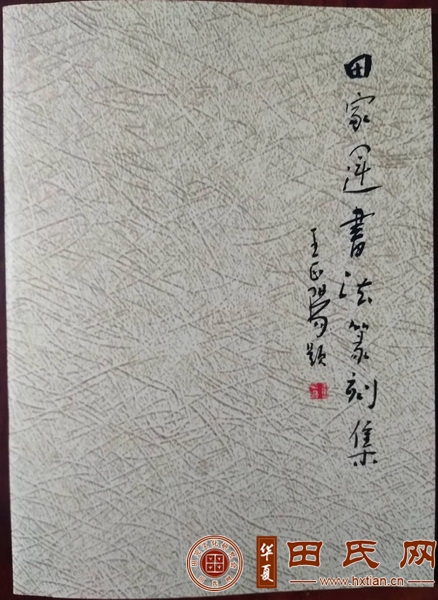 田家運書法篆刻集
王正陽题
华夏
田氏网
www.hxtian.cn